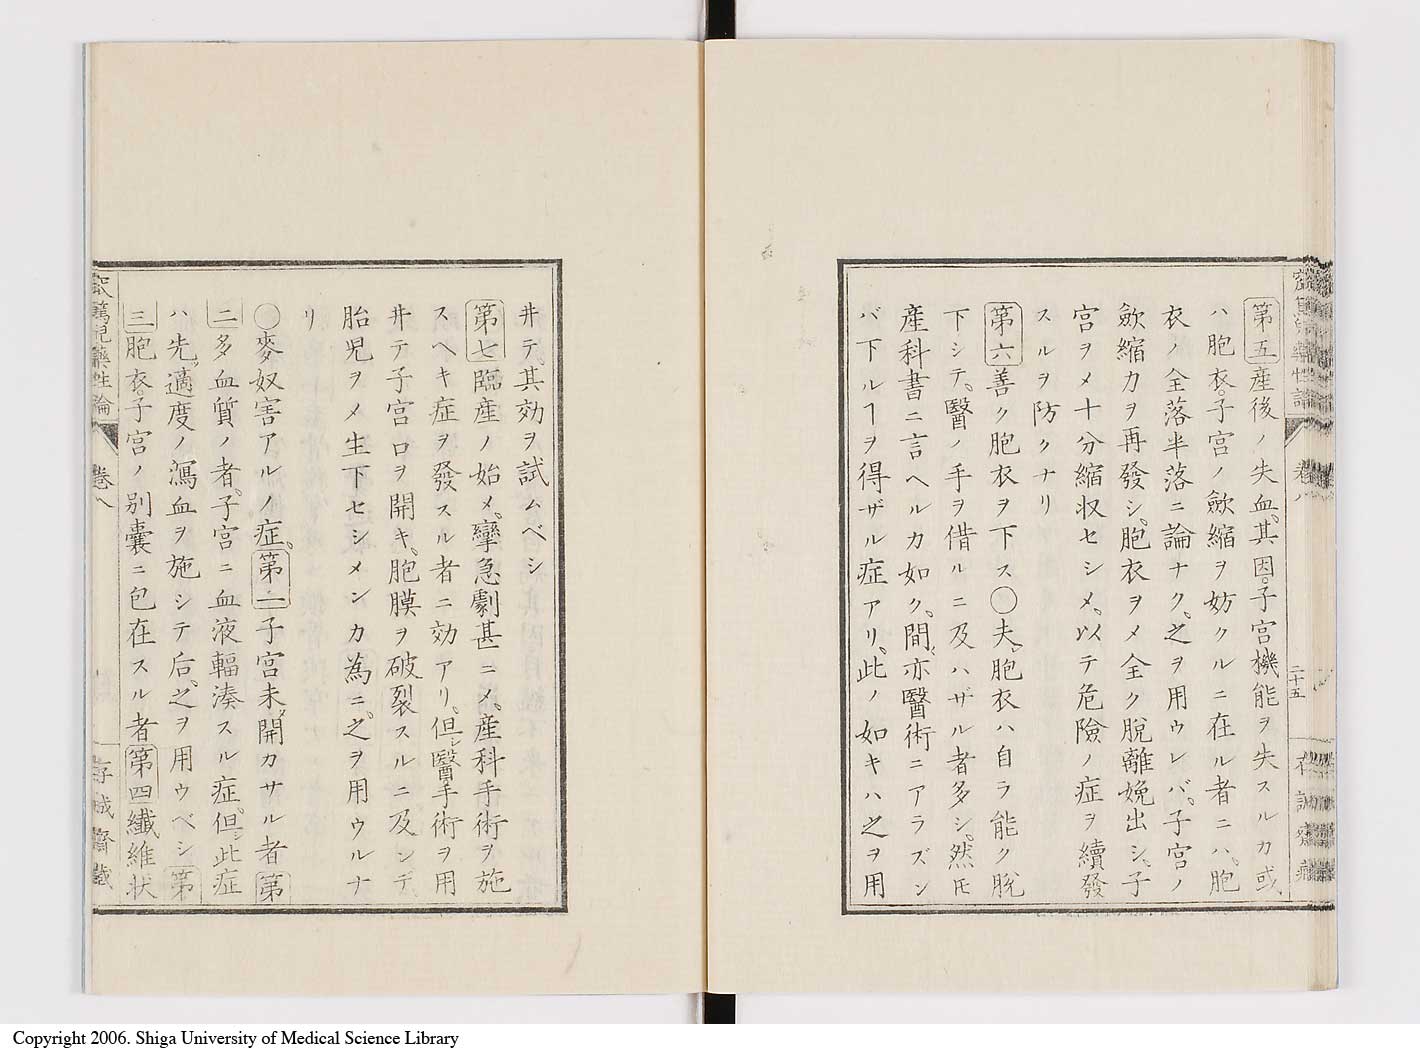 第五産後ノ失血其因子宮機能ヲ失スルカ或
ハ胞衣子宮ノ歛縮ヲ妨クルニ在ル者ニハ胞
衣ノ全落半落ニ論ナク之ヲ用ウレバ子宮ノ
歛縮力ヲ再發シ胞衣ヲメ全ク脱離娩出シ子
宮ヲメ十分縮収セシメ以テ危險ノ症ヲ續發
スルヲ防クナリ
第六善ク胞衣ヲ下ス〇夫胞衣ハ自ラ能ク脱
下シテ醫ノ手ヲ借ルニ及ハザル者多シ然𪜈
産科書ニ言ヘルカ如ク間亦醫術ニアラズン
バ下ルヿヲ得ザル症アリ此ノ如キハ之ヲ用
二十五
井テ其効ヲ試ムベシ
第七臨産ノ始メ攣急劇甚ニメ産科手術ヲ施
スヘキ症ヲ發スル者ニ効アリ但シ醫手術ヲ用
井テ子宮口ヲ開キ胞膜ヲ破裂スルニ及ンデ
胎児ヲメ生下セシメンカ為ニ之ヲ用ウルナ
リ
〇麥奴害アルノ症第一子宮未開カサル者第
二多血質ノ者子宮ニ血液輻湊スル症但シ此症
ハ先適度ノ瀉血ヲ施シテ后之ヲ用ウベシ第
三胞衣子宮ノ別嚢ニ包在スル者第四纖維状
篤児藥性論
卷八
存誠齋蔵
Copyright 2006. Shiga University of Medical Science Library